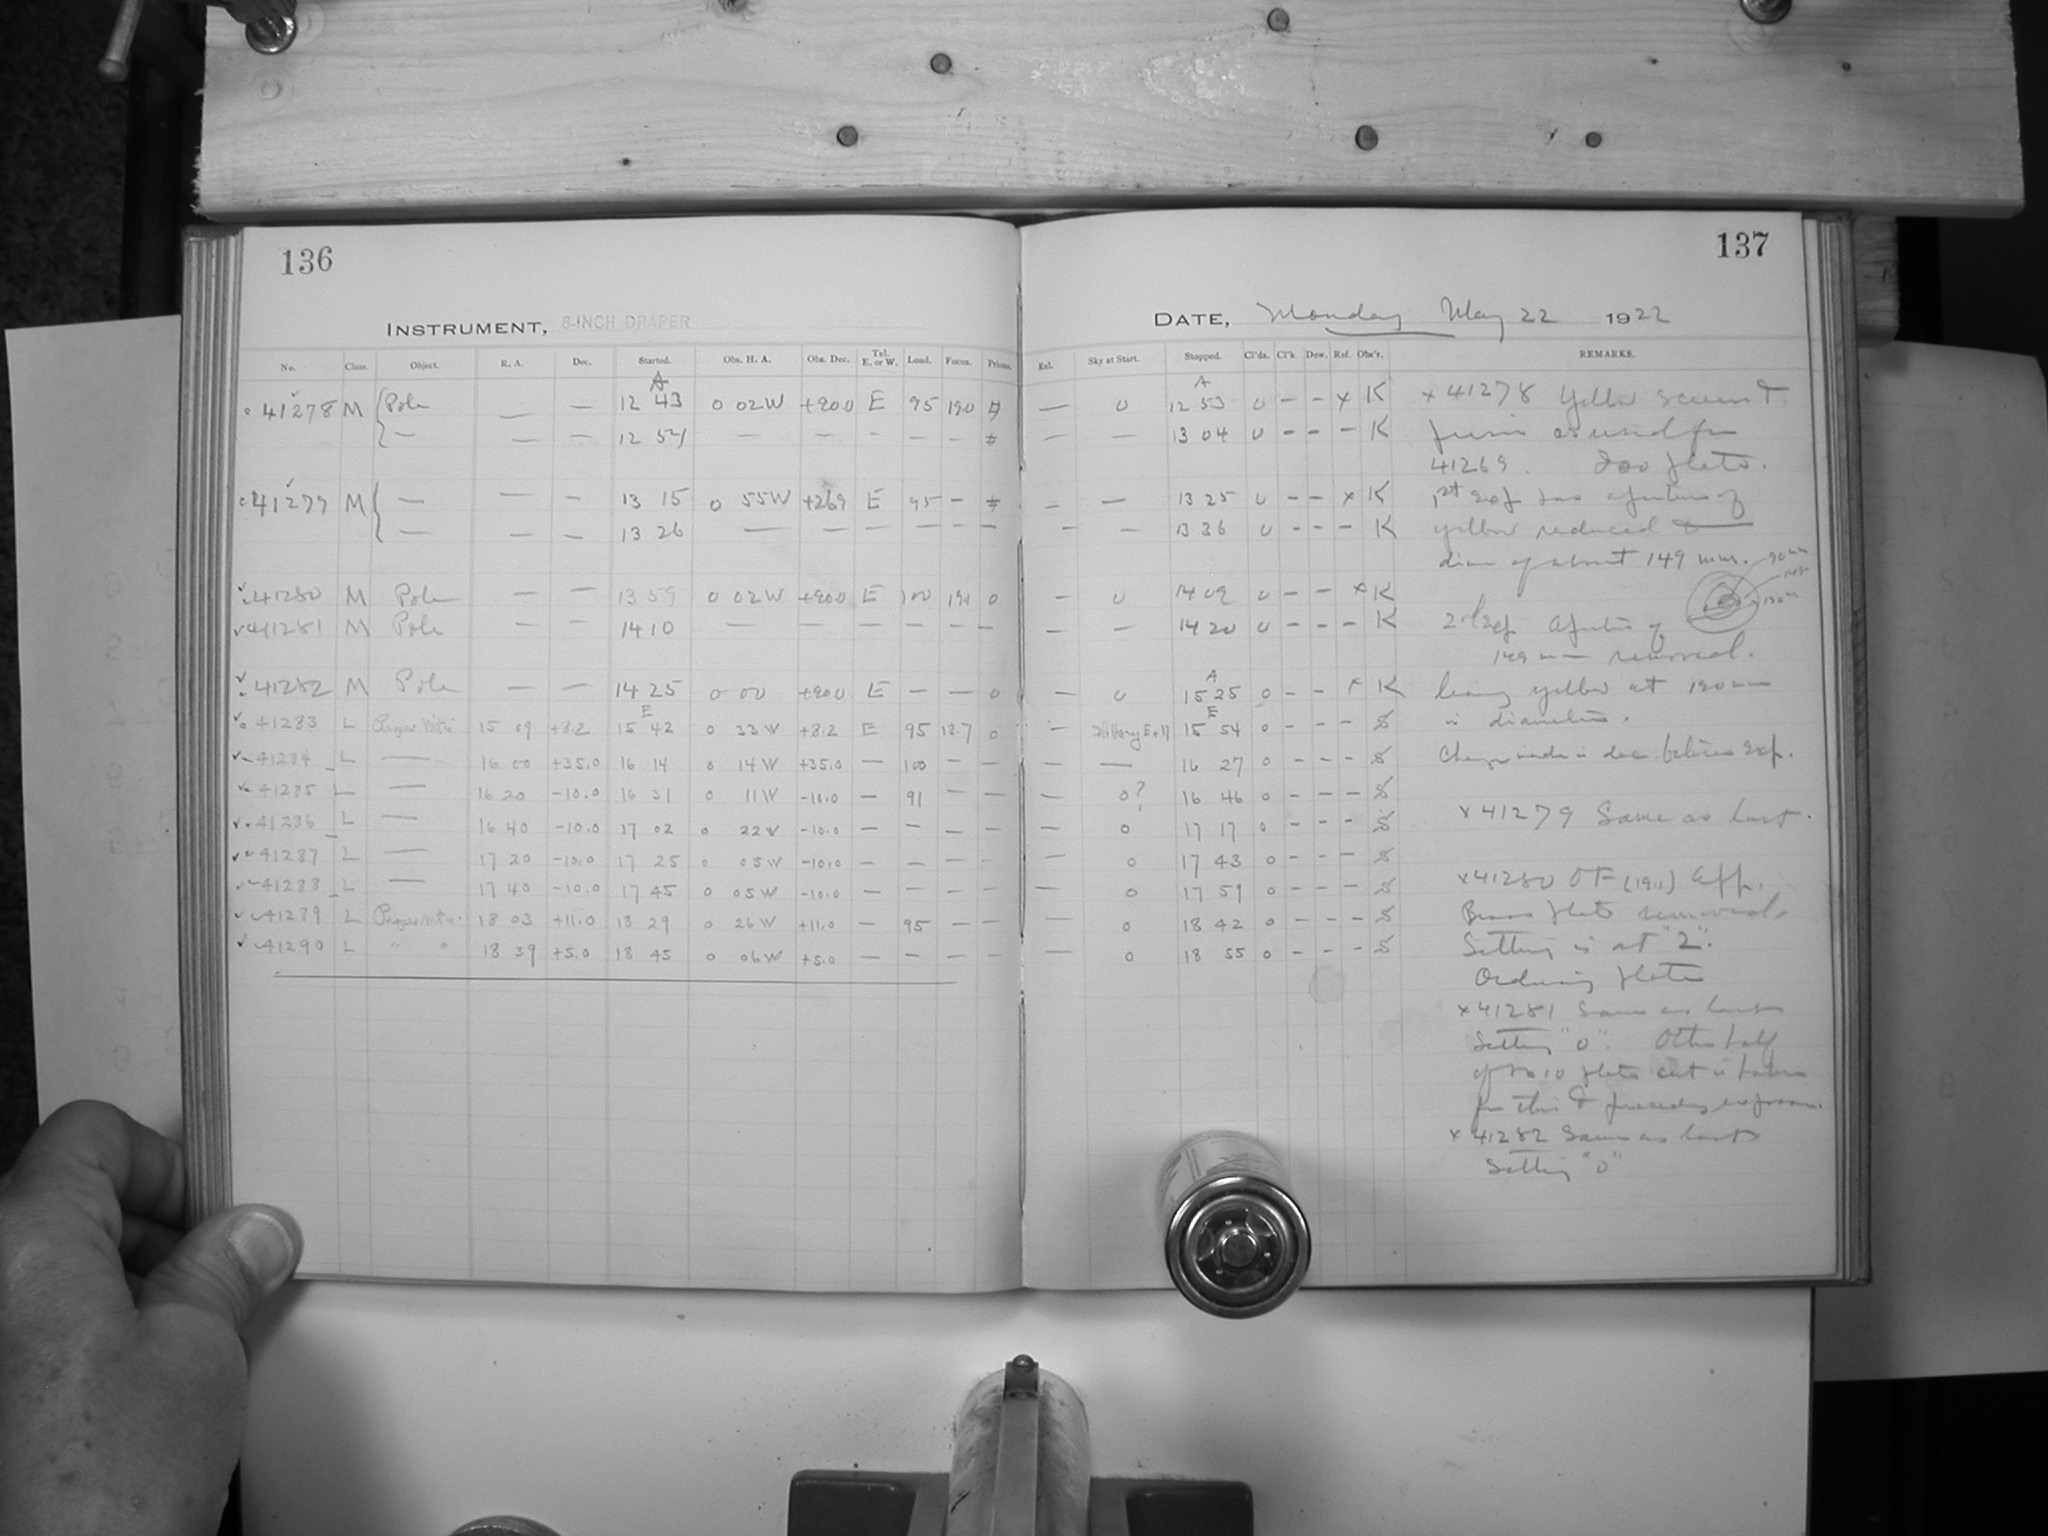 136
137
INSTRUMENT, 8-INCH DRAPER
DATE, Monday May 22 1922
No. Class. Object. R. A. Dec. Started. Obs. H. A. Obs. Dec. Tel. E. or W. Load. Focus. Prisms. Enl. Sky at Start. Stopped. Cl'ds. Cl'k Dew. Ref. Obs'r. REMARKS.
A A
41278 M Pole — — 12 43 0 02 W +90.0 E 95 190 — 0 12 53 0 – – x K
— — — 12 54 — — – – – — — 13 04 0 – – – K
41279 M — — — 13 15 0 55 W +269 E 95 – – — 13 25 0 – – x K
— — — 13 26 — — — — — – – — 13 36 0 – – – K
41280 M Pole — — 13 59 0 02 W +90.0 E 100 191 0 — 0 14 09 0 – – x K
41281 M Pole — — 14 10 — — — — — — — — 14 20 0 – – – K
41282 M Pole — — 14 25 0 00 +90.0 E — — 0 — 0 A 15 25 0 – – x K
E E
41283 L 15 09 +8.2 15 42 0 33 W +8.2 E 95 18.7 0 — E+N 15 54 0 – – – S
41284 L — 16 00 +35.0 16 14 0 14 W +35.0 — 100 — — — — 16 27 0 – – – S
41285 L — 16 20 -10.0 16 31 0 11 W -10.0 — 91 — — — 0? 16 46 0 – – – S
41286 L — 16 40 -10.0 17 02 0 22 W -10.0 — — — — — 0 17 17 0 – – – S
41287 L — 17 20 -10.0 17 25 0 05 W -10.0 — — — — — 0 17 43 0 – – – S
41288 L — 17 40 -10.0 17 45 0 05 W -10.0 — — — — — 0 17 59 0 – – – S
41289 L 18 03 +11.0 18 29 0 26 W +11.0 — 95 — — — 0 18 42 0 – – – S
41290 L " " 18 39 +5.0 18 45 0 06 W +5.0 — — — — — 0 18 55 0 – – – S
x 41278 Yellow screen &
prism as used for
41269. plate.
1st Exp has aperture of
yellow reduced
diam of about 149 mm. 90 mm
2d Exp Aperture of
149 mm removed.
leaving yellow at 190 mm
in diameter.
Change made in dec. between Exp.
x 41279 Same as last.
x 41280 OF (19.1) App.
Brass plate removed.
Setting is at "2".
Ordinary plate
x 41281 Same as last
Setting "0". Other half
of plate cut is taken
for this & preceding exposure.
x 41282 Same as last
Setting "0"